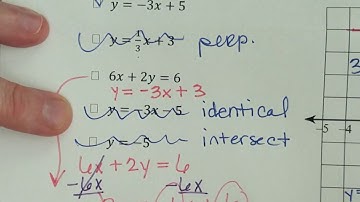 ☑ y = −3x + 5
□ x = 1/3 x + 3 perp.
□ 6x + 2y = 6
y = −3x + 3
□ x = −3x − 5 identical
□ y = −5 intersect
6x + 2y = 6
−6x −6x
−5 −4
3
y =